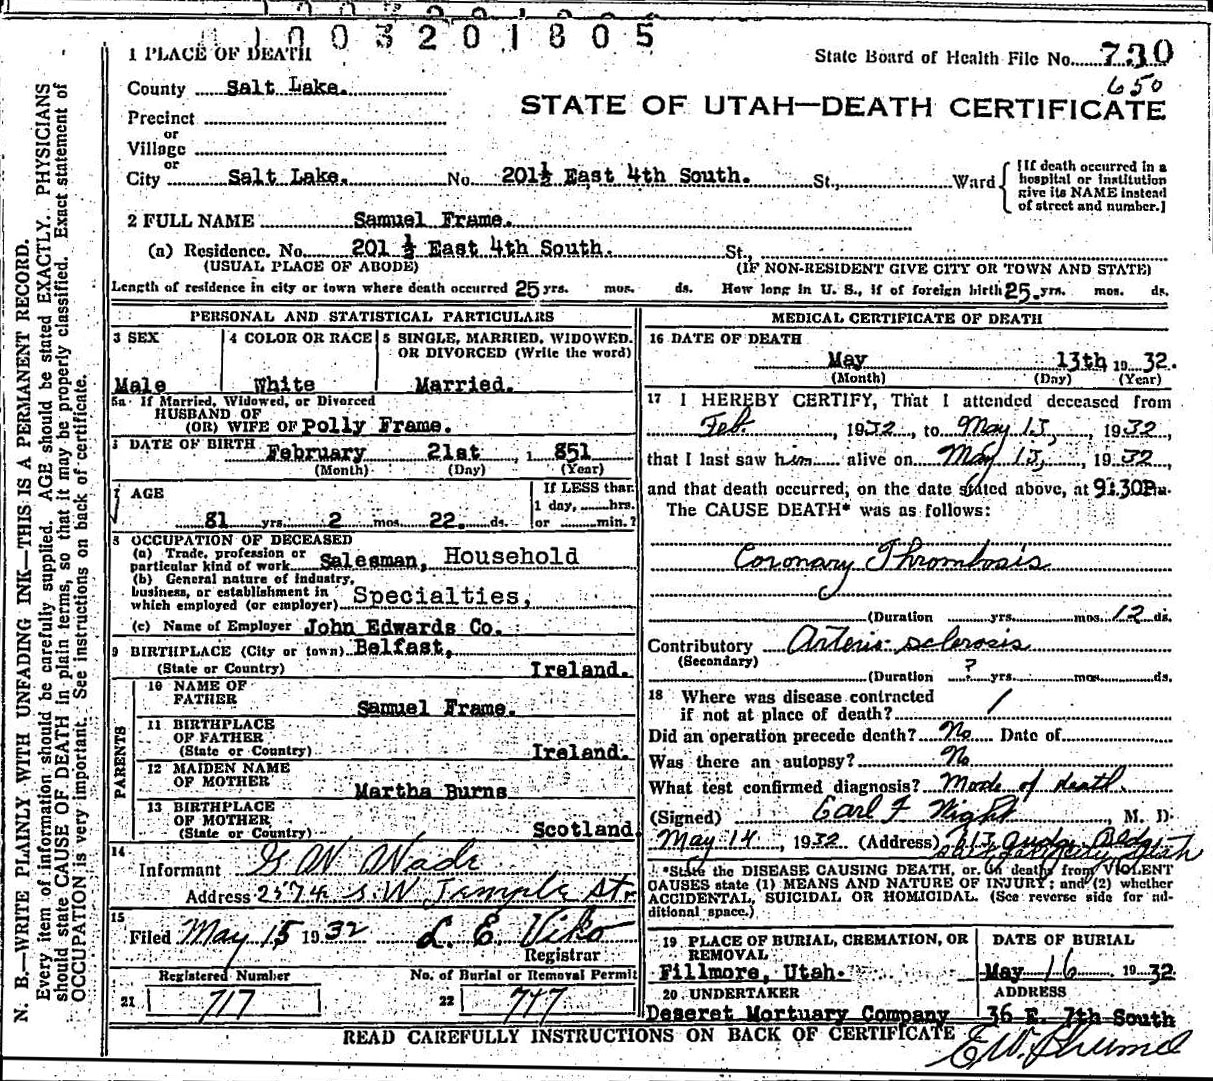 1003201805
1 PLACE OF DEATH
State Board of Health File No. 730
650
County Salt Lake.
STATE OF UTAH—DEATH CERTIFICATE
Precinct
or
Village
or
City Salt Lake. No. 201½ East 4th South. St., Ward
[If death occurred in a hospital or institution give its NAME instead of street and number.]
2 FULL NAME Samuel Frame.
(a) Residence. No. 201 ½ East 4th South. St.,
(USUAL PLACE OF ABODE) (IF NON-RESIDENT GIVE CITY OR TOWN AND STATE)
Length of residence in city or town where death occurred 25 yrs. mos. ds. How long in U. S., if of foreign birth 25. yrs. mos. ds.
PERSONAL AND STATISTICAL PARTICULARS
3 SEX
Male
4 COLOR OR RACE
White
5 SINGLE, MARRIED, WIDOWED, OR DIVORCED (Write the word)
Married.
5a If Married, Widowed, or Divorced
HUSBAND OF
(OR) WIFE OF Polly Frame.
DATE OF BIRTH February 21st, 1 851
(Month) (Day) (Year)
7 AGE
81 yrs. 2 mos. 22. ds.
If LESS than
1 day, hrs.
or min.?
8 OCCUPATION OF DECEASED
(a) Trade, profession or
particular kind of work Salesman, Household
(b) General nature of industry,
business, or establishment in
which employed (or employer) Specialties,
(c) Name of Employer John Edwards Co.
9 BIRTHPLACE (City or town) Belfast,
(State or Country) Ireland.
PARENTS
10 NAME OF
FATHER Samuel Frame.
11 BIRTHPLACE
OF FATHER
(State or Country) Ireland.
12 MAIDEN NAME
OF MOTHER Martha Burns
13 BIRTHPLACE
OF MOTHER
(State or Country) Scotland.
14
Informant G W Wade
Address 2574 S. W Temple Str.
15
Filed May 15 1932 L. E. Viko
Registrar
Registered Number No. of Burial or Removal Permit
21 717 22 747
MEDICAL CERTIFICATE OF DEATH
16 DATE OF DEATH
May 13th 19 32.
(Month) (Day) (Year)
17 I HEREBY CERTIFY, That I attended deceased from
Feb. , 1932, to May 13, , 1932,
that I last saw him alive on May 13, , 1932,
and that death occurred, on the date stated above, at 9:30Pm.
The CAUSE DEATH* was as follows:
Coronary Thrombosis
(Duration yrs. mos. 12 ds.
Contributory Arterio-sclerosis
(Secondary)
(Duration ? yrs. mos. ds.
18 Where was disease contracted
if not at place of death? /
Did an operation precede death? No Date of
Was there an autopsy? No
What test confirmed diagnosis? Mode of death.
(Signed) Earl F Wight , M. D.
May 14 , 1932 (Address) Bldg
Salt Lake City, Utah
*State the DISEASE CAUSING DEATH, or in deaths from VIOLENT
CAUSES state (1) MEANS AND NATURE OF INJURY; and (2) whether
ACCIDENTAL, SUICIDAL OR HOMICIDAL. (See reverse side for ad-
ditional space.)
19 PLACE OF BURIAL, CREMATION, OR
REMOVAL
Fillmore, Utah.
DATE OF BURIAL
May 16 19 32
20 UNDERTAKER
Deseret Mortuary Company
ADDRESS
36 E. 7th South
READ CAREFULLY INSTRUCTIONS ON BACK OF CERTIFICATE
N. B.—WRITE PLAINLY WITH UNFADING INK—THIS IS A PERMANENT RECORD.
Every item of information should be carefully supplied. AGE should be stated EXACTLY. PHYSICIANS
should state CAUSE OF DEATH in plain terms, so that it may be properly classified. Exact statement of
OCCUPATION is very important. See instructions on back of certificate.